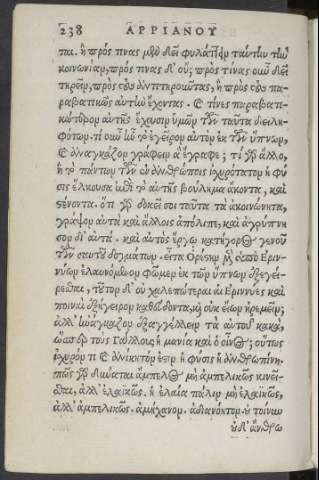 238 ΑΡΡΙΑΝΟΥ
ται. ἢ πρός τινας μὲν δεῖ φυλάττειν ταύτην τὴν
κοινωνίαν, πρός τινας δ' οὔ; πρὸς τίνας οὖν δεῖ
τηρεῖν, πρὸς τοὺς ἀντιτηροῦντας, ἢ πρὸς τοὺς πα-
ραβατικῶς αὐτὴν ἔχοντας. καὶ τίνες παραβατι-
κώτερον αὐτῆς ἔχουσιν ὑμῶν τῶν ταῦτα διειλη-
φότων. τί οὖν ἦν τὸ ἐγεῖρον αὐτὸν ἐκ τῶν ὕπνων,
καὶ ἀναγκάζον γράφειν ἃ ἔγραφε; τί γὰρ ἄλλο,
ἢ τὸ πάντων τῶν ἐν ἀνθρώποις ἰσχυρότατον ἡ φύ
σις ἕλκουσα ἐπὶ τὸ αὐτῆς βούλημα ἄκοντα, καὶ
στένοντα. ὅτι γὰρ δοκεῖ σοι ταῦτα τὰ ἀκοινώνητα,
γράψον αὐτὰ καὶ ἄλλοις ἀπόλιπε, καὶ ἀγρύπνη
σον δι' αὐτά. καὶ αὐτὸς ἔργῳ κατήγορος γενοῦ
τῶν σαυτοῦ δογμάτων. εἶτα Ὀρέστην μὲν ὑπὸ Ἐριν-
νύων ἐλαυνόμενον φῶμεν ἐκ τῶν ὕπνων ἐξεγεί-
ρεσθαι, τούτῳ δ' οὐ χαλεπώτεραι αἱ Ἐριννύες καὶ
ποιναὶ ἐξήγειρον καθεύδοντα, καὶ οὐκ εἴων ἠρεμεῖν;
ἀλλ' ἠνάγκαζον ἐξαγγέλλειν τὰ αὑτοῦ κακά,
ὥσπερ τοὺς Γάλλους ἡ μανία καὶ ὁ οἶνος; οὕτως
ἰσχυρόν τι καὶ ἀνίκητόν ἐστιν ἡ φύσις ἡ ἀνθρωπίνη.
πῶς γὰρ δύναται ἄμπελος μὴ ἀμπελικῶς κινεῖ-
σθαι, ἀλλ' ἐλαϊκῶς. ἢ ἐλαία πάλιν μὴ ἐλαϊκῶς,
ἀλλ' ἀμπελικῶς. ἀμήχανον. ἀδιανόητον. οὐ τοίνυν
οὐδ' ἄνθρω